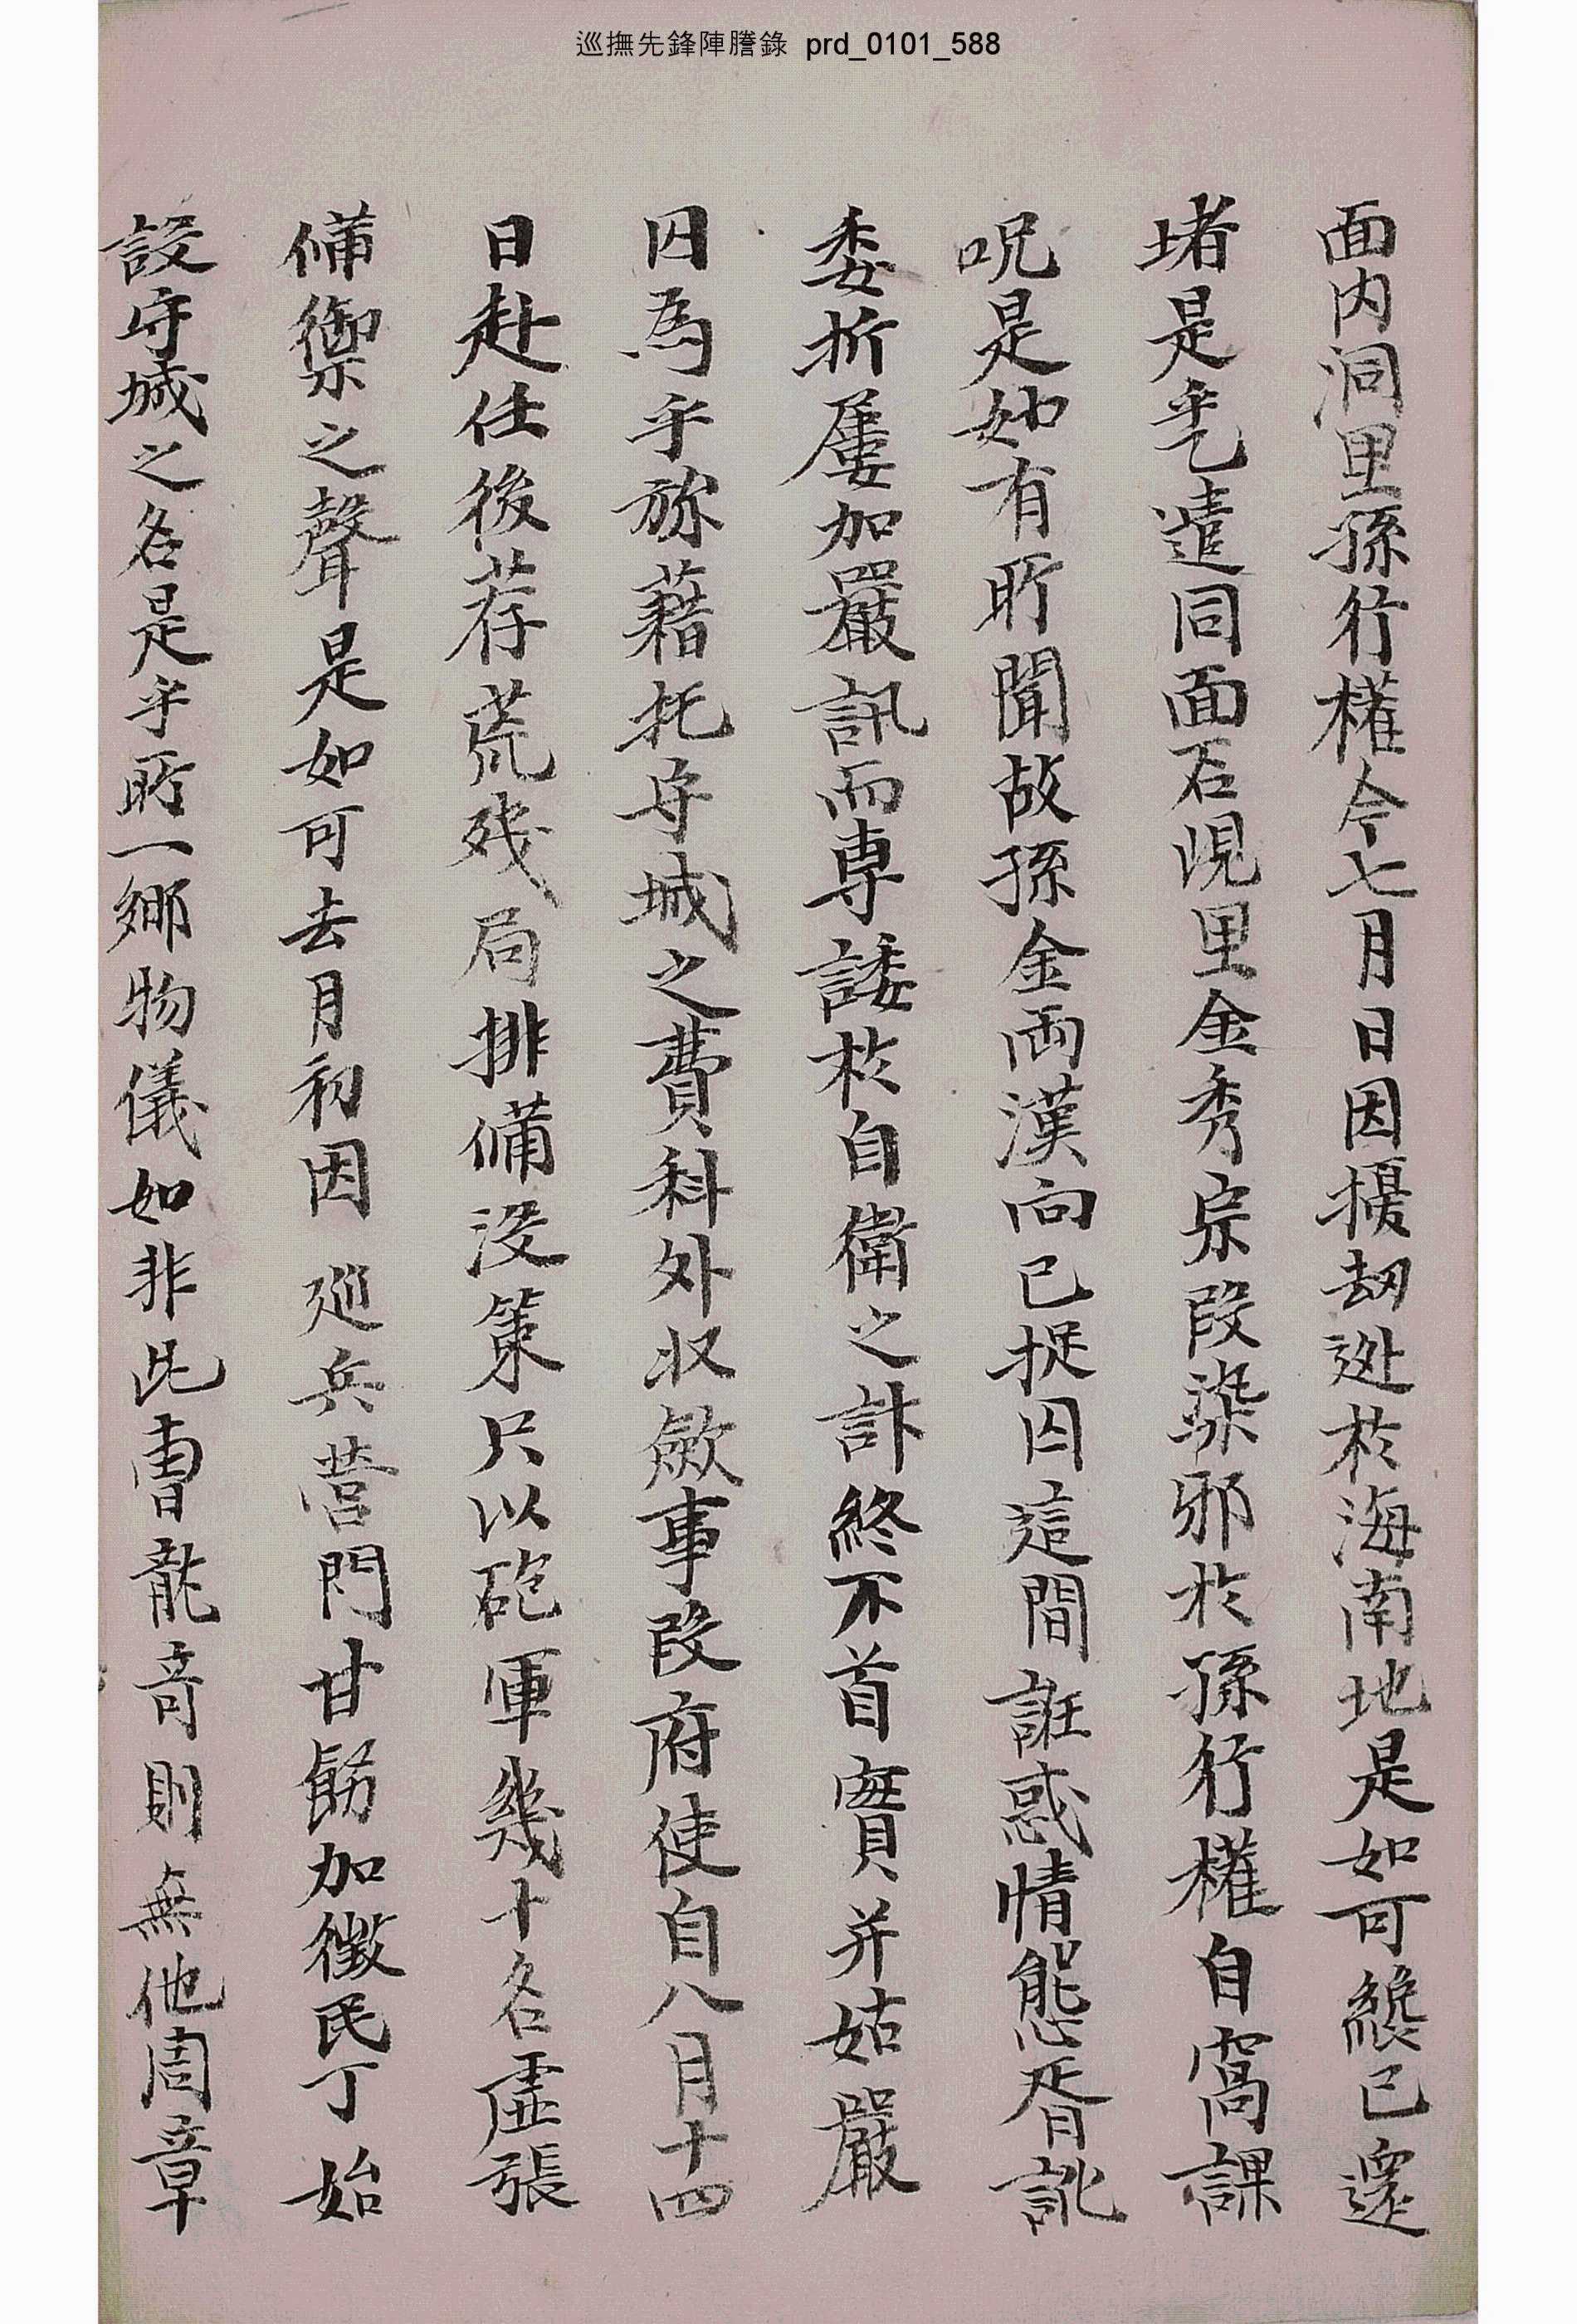 巡撫先鋒陣謄錄 prd_0101_588
面內洞里孫行權今七月日因擾刼逃於海南地是如可纔已還
堵是乎乙遣同面石峴里金秀宗段染邪於孫行權自窩課
呪是如有所聞故孫金兩漢向已捉囚這間誑惑情態胥訛
委折屢加嚴訊而專諉於自衛之計終不首實并姑嚴
囚爲乎㫆藉托守城之費科外收斂事段府使自八月十四
日赴任後荐荒殘局排備沒策只以砲軍幾十名虛張
備禦之聲是如可去月初因 巡兵營門甘飭加徵民丁始
設守城之名是乎所一鄉物儀如非此曹龍奇則無他周章